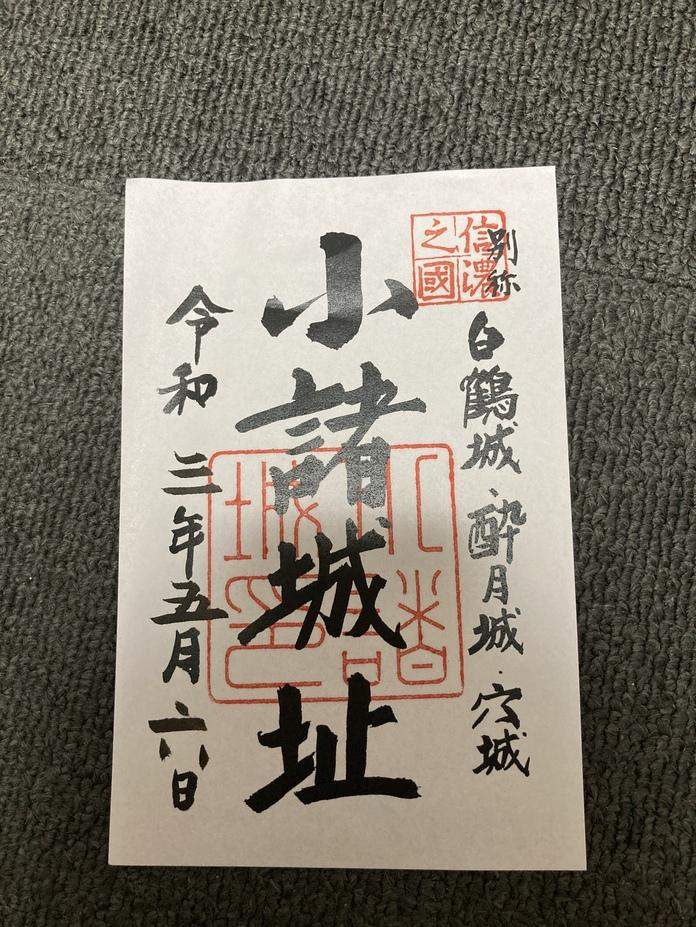 別称 白鶴城・酔月城・穴城
信濃
之國
小諸城址
小諸
城印
令和 三年五月六日